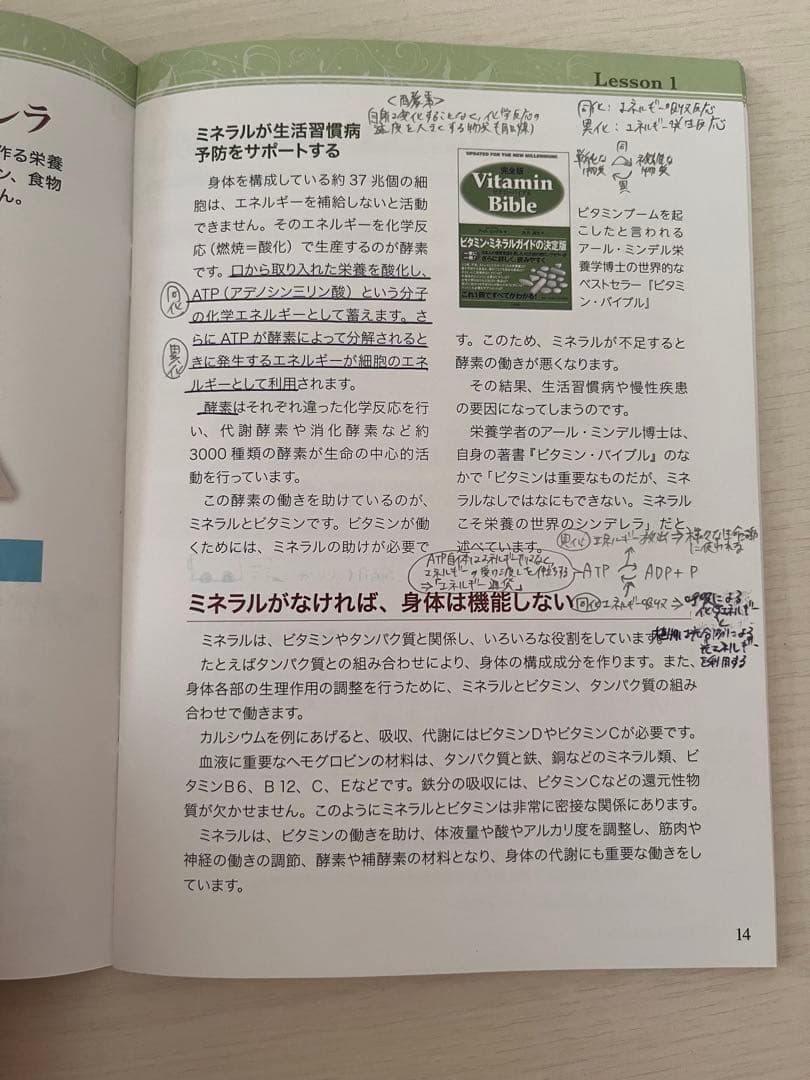 Lesson 1
ラ
作る栄養
ン、食物
ん。
<酵素>
同化：エネルギー吸収反応
異化：エネルギー発生反応
同
異
ミネラルが生活習慣病
予防をサポートする
身体を構成している約 37 兆個の細
胞は、エネルギーを補給しないと活動
できません。そのエネルギーを化学反
応（燃焼＝酸化）で生産するのが酵素
です。口から取り入れた栄養を酸化し、
ATP（アデノシン三リン酸）という分子
の化学エネルギーとして蓄えます。さ
らに ATP が酵素によって分解されると
きに発生するエネルギーが細胞のエネ
ルギーとして利用されます。
同化
異化
酵素はそれぞれ違った化学反応を行
い、代謝酵素や消化酵素など約
3000 種類の酵素が生命の中心的活
動を行っています。
この酵素の働きを助けているのが、
ミネラルとビタミンです。ビタミンが働
くためには、ミネラルの助けが必要で
UPDATED FOR THE NEW MILLENNIUM
完全版
Vitamin
Bible
ビタミン・ミネラルガイドの決定版
これ1冊ですべてがわかる！
ビタミンブームを起
こしたと言われる
アール・ミンデル栄
養学博士の世界的な
ベストセラー『ビタミ
ン・バイブル』
す。このため、ミネラルが不足すると
酵素の働きが悪くなります。
その結果、生活習慣病や慢性疾患
の要因になってしまうのです。
栄養学者のアール・ミンデル博士は、
自身の著書『ビタミン・バイブル』のな
かで「ビタミンは重要なものだが、ミネ
ラルなしではなにもできない。ミネラル
こそ栄養の世界のシンデレラ」だと
述べています。
異化 エネルギー放出⇒様々な生命活動に使われる
ATP ADP + P
⇒「エネルギー通貨」
同化 エネルギー吸収⇒呼吸による
化学エネルギー
と
植物は光合成による
光エネルギー
を利用する
ミネラルがなければ、身体は機能しない
ミネラルは、ビタミンやタンパク質と関係し、いろいろな役割をしています。
たとえばタンパク質との組み合わせにより、身体の構成成分を作ります。また、
身体各部の生理作用の調整を行うために、ミネラルとビタミン、タンパク質の組み
合わせで働きます。
カルシウムを例にあげると、吸収、代謝にはビタミンDやビタミンCが必要です。
血液に重要なヘモグロビンの材料は、タンパク質と鉄、銅などのミネラル類、ビ
タミンB6、B 12、C、Eなどです。鉄分の吸収には、ビタミンCなどの還元性物
質が欠かせません。このようにミネラルとビタミンは非常に密接な関係にあります。
ミネラルは、ビタミンの働きを助け、体液量や酸やアルカリ度を調整し、筋肉や
神経の働きの調節、酵素や補酵素の材料となり、身体の代謝にも重要な働きをし
ています。
14